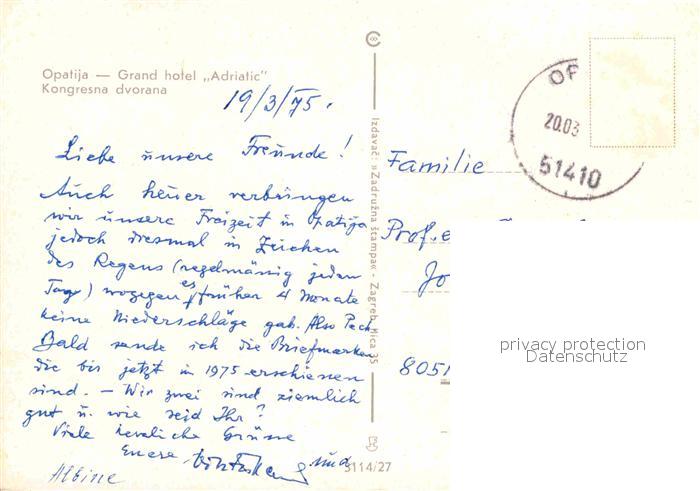 Opatija — Grand hotel „Adriatic"
Kongresna dvorana
19/3/75.
Liebe unsere Freunde!
Auch heuer verbringen
wir unsere Freizeit in Opatija
jedoch diesmal in Zeichen
des Regens (regelmässig jeden
Tag) wogegen es früher 4 Monate
keine Niederschläge gab. Also Pech
Bald sende ich die Briefmarken
die bis jetzt in 1975 erschienen
sind. – Wir zwei sind ziemlich
gut u. wie seid Ihr?
Viele herzliche Grüsse
Euere und
Albine
Izdavač: »Zadružna štampa« - Zagreb, Ilica 35
3114/27
OP
20.03
51410
Familie
Prof.
Jo
8051
privacy protection
Datenschutz